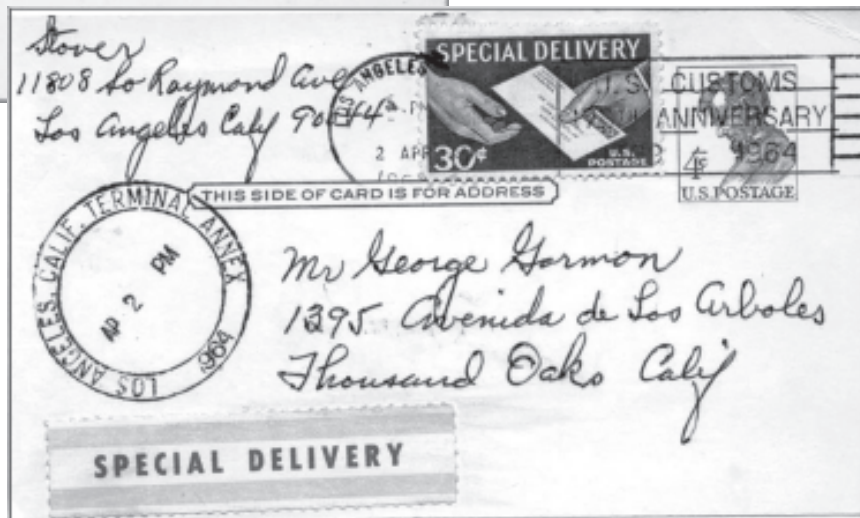 Stover
11808 So Raymond Ave
Los Angeles Calif 90044
SPECIAL DELIVERY
30¢
U.S.
POSTAGE
LOS ANGELES
PM
2 APR
U.S. CUSTOMS
ANNIVERSARY
1964
4¢
U.S. POSTAGE
THIS SIDE OF CARD IS FOR ADDRESS
LOS ANGELES, CALIF. TERMINAL ANNEX
AP 2 PM
1964
Mr George Gormon
1295 Avenida de Los Arboles
Thousand Oaks Calif
SPECIAL DELIVERY